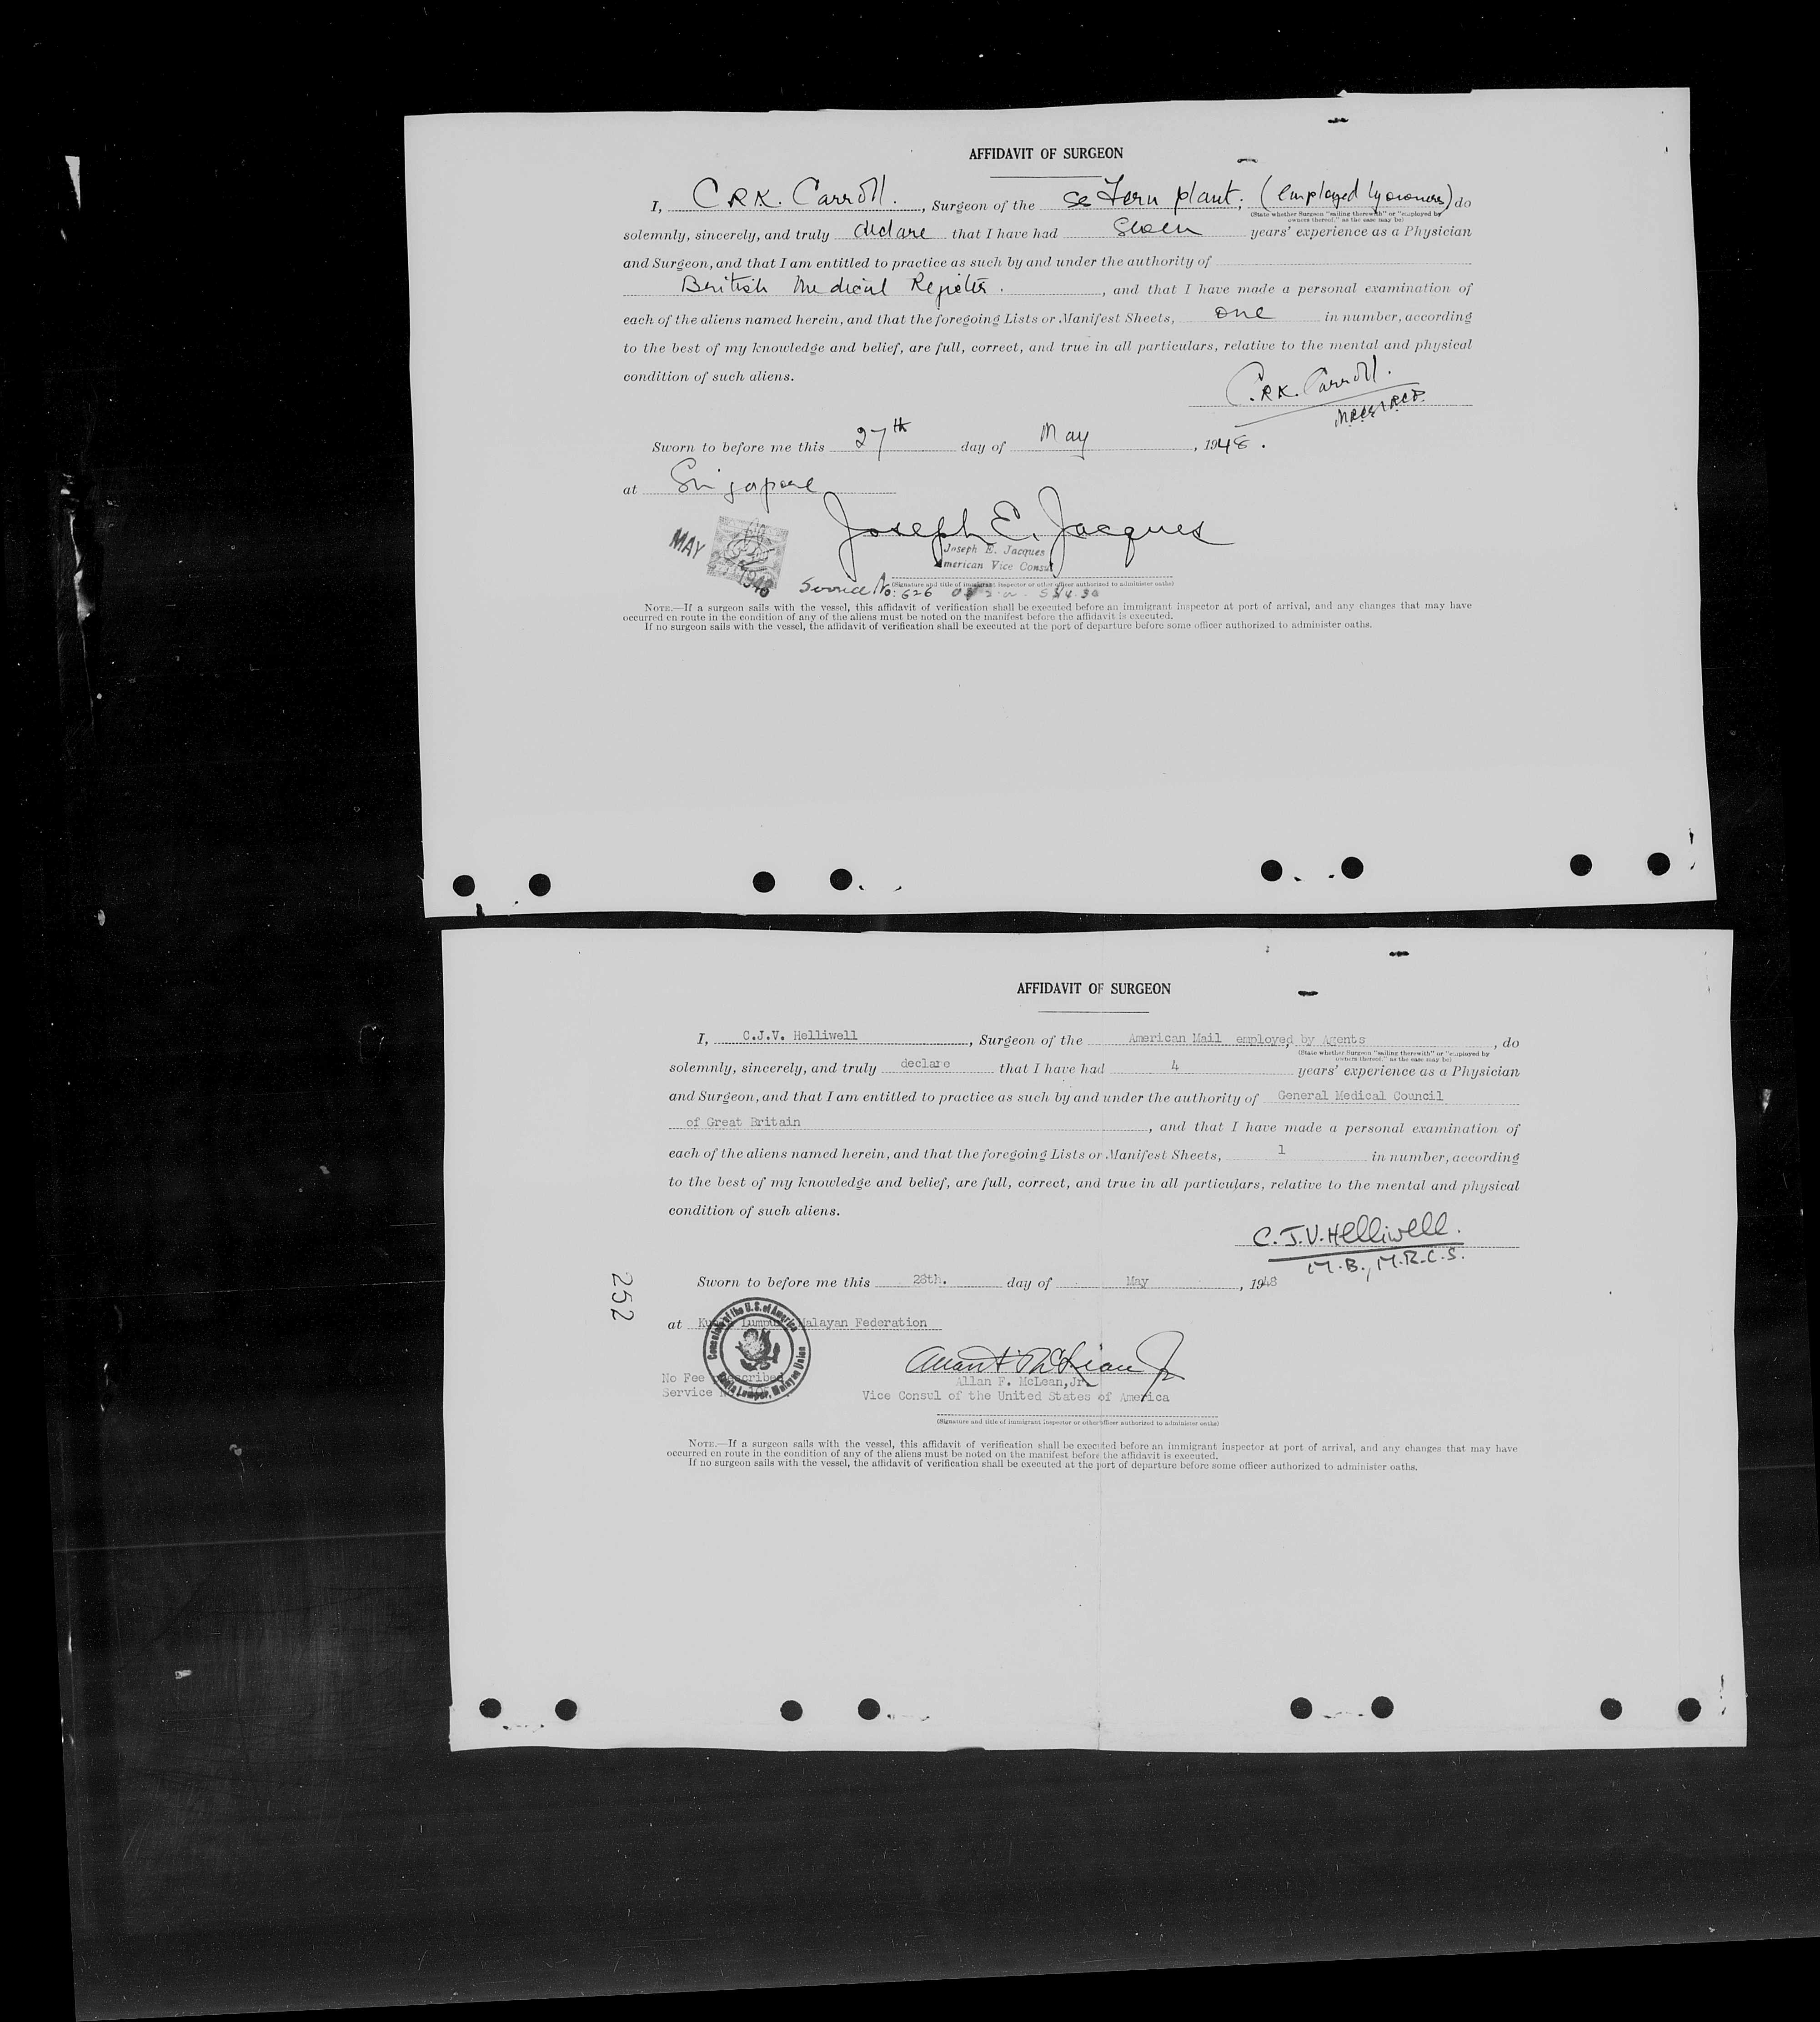 AFFIDAVIT OF SURGEON
I, C.R.K. Carroll., Surgeon of the SS Fernplant, (employed by owners) do
(State whether Surgeon "sailing therewith" or "employed by
owners thereof," as the case may be)
solemnly, sincerely, and truly declare that I have had Seven years' experience as a Physician
and Surgeon, and that I am entitled to practice as such by and under the authority of
British Medical Register., and that I have made a personal examination of
each of the aliens named herein, and that the foregoing Lists or Manifest Sheets, one in number, according
to the best of my knowledge and belief, are full, correct, and true in all particulars, relative to the mental and physical
condition of such aliens.
C.R.K. Carroll.
MRCS LRCP.
Sworn to before me this 27th day of May, 1948.
at Singapore
Joseph E. Jacques
MAY
1948
Joseph E. Jacques
American Vice Consul
(Signature and title of immigrant inspector or other officer authorized to administer oaths)
Service No: 626
NOTE.—If a surgeon sails with the vessel, this affidavit of verification shall be executed before an immigrant inspector at port of arrival, and any changes that may have
occurred en route in the condition of any of the aliens must be noted on the manifest before the affidavit is executed.
If no surgeon sails with the vessel, the affidavit of verification shall be executed at the port of departure before some officer authorized to administer oaths.
AFFIDAVIT OF SURGEON
I, C.J.V. Helliwell, Surgeon of the American Mail employed by Agents, do
(State whether Surgeon "sailing therewith" or "employed by
owners thereof," as the case may be)
solemnly, sincerely, and truly declare that I have had 4 years' experience as a Physician
and Surgeon, and that I am entitled to practice as such by and under the authority of General Medical Council
of Great Britain, and that I have made a personal examination of
each of the aliens named herein, and that the foregoing Lists or Manifest Sheets, 1 in number, according
to the best of my knowledge and belief, are full, correct, and true in all particulars, relative to the mental and physical
condition of such aliens.
C.J.V. Helliwell.
M.B., M.R.C.S.
Sworn to before me this 28th. day of May, 1948
252
at Kuala Lumpur, Malayan Federation
Consulate of the U.S. of America
Kuala Lumpur, Malayan Union
Allan F. McLean Jr
No Fee Prescribed
Allan F. McLean, Jr.
Service No.
Vice Consul of the United States of America
(Signature and title of immigrant inspector or other officer authorized to administer oaths)
NOTE.—If a surgeon sails with the vessel, this affidavit of verification shall be executed before an immigrant inspector at port of arrival, and any changes that may have
occurred en route in the condition of any of the aliens must be noted on the manifest before the affidavit is executed.
If no surgeon sails with the vessel, the affidavit of verification shall be executed at the port of departure before some officer authorized to administer oaths.